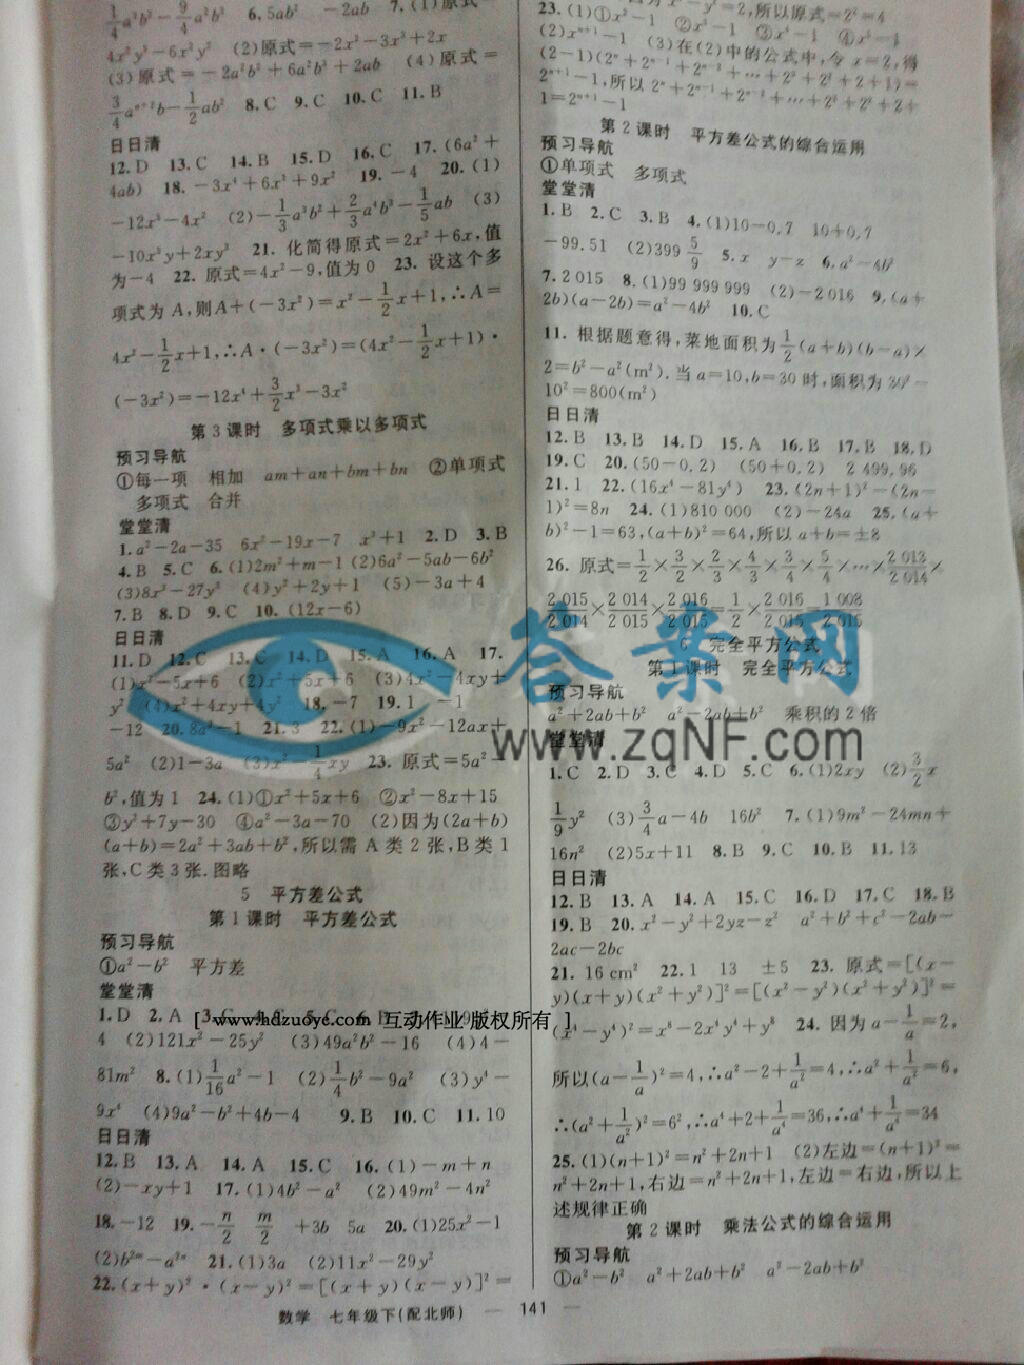 4x²y³-6x³y² (2)原式=-2x²-3x³+2x
(3)原式=-2a²b²+6a²b³+2ab (4)原式=
8.C 9.C 10.C 11.B
日日清
12.D 13.C 14.B 15.D 16.C 17.(6a²+
4ab) 18.-3x⁴+6x³+9x² 19.-4 20.(1)
-12x³-4x² (2)-1/3a³b²+2/3a⁴b³-1/5ab (3)
-10x³y+2xy³ 21. 化简得原式=2x²+6x,值
为-4 22. 原式=4x²-9,值为0 23. 设这个多
项式为A,则A+(-3x²)=x²-1/2x+1,∴A=
4x²-1/2x+1,∴A·(-3x²)=(4x²-1/2x+1)·
(-3x²)=-12x⁴+3/2x³-3x²
第3课时 多项式乘以多项式
预习导航
①每一项 相加 am+an+bm+bn ②单项式
多项式 合并
堂堂清
1.a²-2a-35 6x²-19x-7 x³+1 2.D 3.B
4.B 5.C 6.(1)2m²+m-1 (2)6a²-5ab-6b²
(3)8x³-27y³ (4)y²+2y+1 (5)-3a+4
7.B 8.D 9.C 10.(12x-6)
日日清
11.D 12.C 13.C 14.D 15.A 16.A 17.
(1)x²-5x+6 (2)x²+5x+6 (3)4x²-4xy+
y² (4)x²+4xy+4y² 18.-7 19.1 -1
-12 20.8a³-1 21.3 22.(1)-9x²-12ax+
5a² (2)1-3a (3)x²-1/4xy 23. 原式=5a²-
b²,值为1 24.(1)①x²+5x+6 ②x²-8x+15
③y²+7y-30 ④a²-3a-70 (2)因为(2a+b)
(a+b)=2a²+3ab+b²,所以需A类2张,B类1
张,C类3张.图略
5 平方差公式
第1课时 平方差公式
预习导航
①a²-b² 平方差
堂堂清
1.D 2.A 3.C 4.C 5.C 6.D
4 (2)121x²-25y² (3)49a²b²-16 (4)4-
81m² 8.(1)1/16a²-1 (2)1/4b²-9a² (3)y⁴-
9x⁴ (4)9a²-b²+4b-4 9.B 10.C 11.10
日日清
12.B 13.A 14.A 15.C 16.(1)-m+n
(2)-xy+1 17.(1)4b²-a² (2)49m²-4n²
18.-12 19.-n/2 m/2 +3b 5a 20.(1)25x²-1
(2)b²ᵐ-a²ⁿ 21.(1)3a (2)11x²-29y²
22.(x+y)²·(x-y)²=[(x+y)(x-y)]²=
23.(1)①x²-1 ②x³-1 ③x⁴-1 ④x⁵-1
(2)xⁿ⁺¹-1 (3)在(2)中的公式中,令x=2,得
(2-1)(2ⁿ+2ⁿ⁻¹+2ⁿ⁻²+…+2³+2²+2+1)=
2ⁿ⁺¹-1,所以2ⁿ+2ⁿ⁻¹+2ⁿ⁻²+…+2³+2²+2+
1=2ⁿ⁺¹-1
第2课时 平方差公式的综合运用
预习导航
①单项式 多项式
堂堂清
1.B 2.C 3.B 4.(1)10-0.7 10+0.7
-99.51 (2)399 5/9 5.x y-z 6.a²-4b²
7.2 015 8.(1)99 999 999 (2)-2 016 9.(a+
2b)(a-2b)=a²-4b² 10.C
11. 根据题意得,菜地面积为1/2(a+b)(b-a)×
2=b²-a²(m²).当a=10,b=30时,面积为30²-
10²=800(m²)
日日清
12.B 13.B 14.D 15.A 16.B 17.B 18.D
19.C 20.(50-0.2) (50+0.2) 2 499.96
21.1 22.(16x⁴-81y⁴) 23.(2n+1)²-(2n-
1)²=8n 24.(1)810 000 (2)-24a 25.(a+
b)²-1=63,(a+b)²=64,所以a+b=±8
26. 原式=1/2×3/2×2/3×4/3×3/4×5/4×…×2 013/2 014×
2 015/2 014×2 014/2 015×2 016/2 015=1/2×2 016/2 015=1 008/2 015
完全平方公式
第1课时 完全平方公式
预习导航
a²+2ab+b² a²-2ab+b² 乘积的2倍
堂堂清
1.C 2.D 3.C 4.D 5.C 6.(1)2xy (2)3/2x
1/9y² (3)3/4a-4b 16b² 7.(1)9m²-24mn+
16n² (2)5x+11 8.B 9.C 10.B 11.13
日日清
12.B 13.A 14.A 15.C 16.D 17.C 18.B
19.B 20.x²-y²+2yz-z² a²+b²+c²-2ab-
2ac-2bc
21.16 cm² 22.1 13 ±5 23. 原式=[(x-
y)(x+y)(x²+y²)]²=[(x²-y²)(x²+y²)]²=
(x⁴-y⁴)²=x⁸-2x⁴y⁴+y⁸ 24. 因为a-1/a=2,
所以(a-1/a)²=4,∴a²-2+1/a²=4,∴a²+1/a²=6,
∴(a²+1/a²)²=6²,∴a⁴+2+1/a⁴=36,∴a⁴+1/a⁴=34
25.(1)(n+1)²=n²+2n+1 (2)左边=(n+1)²=
n²+2n+1,右边=n²+2n+1,左边=右边,所以上
述规律正确
第2课时 乘法公式的综合运用
预习导航
①a²-b² a²+2ab+b² a²-2ab+b²
数学 七年级下(配北师) — 141 —
答案网
www.zqNF.com
[ www.hdzuoye.com 互动作业 版权所有 ]